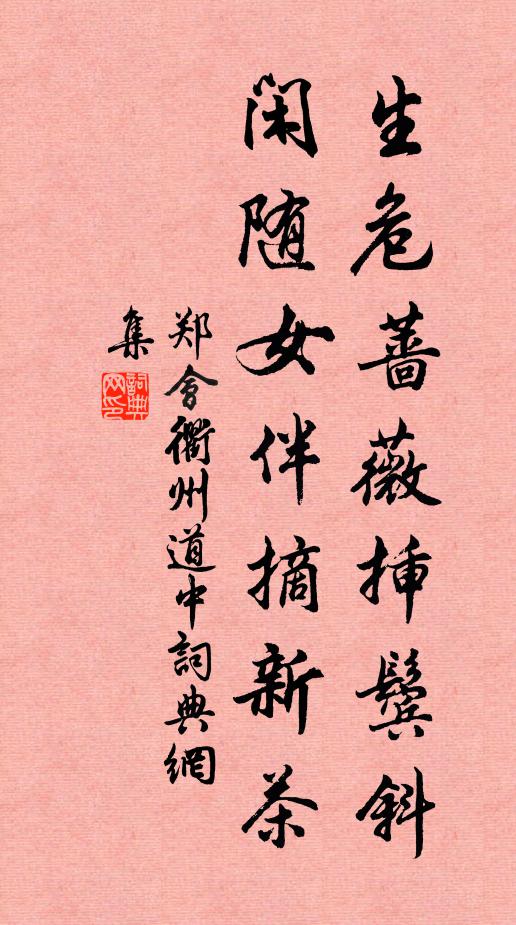 生危蔷薇揷鬓斜
闲随女伴摘新茶
郑会衢州道中詞典網
集
詞典
网印